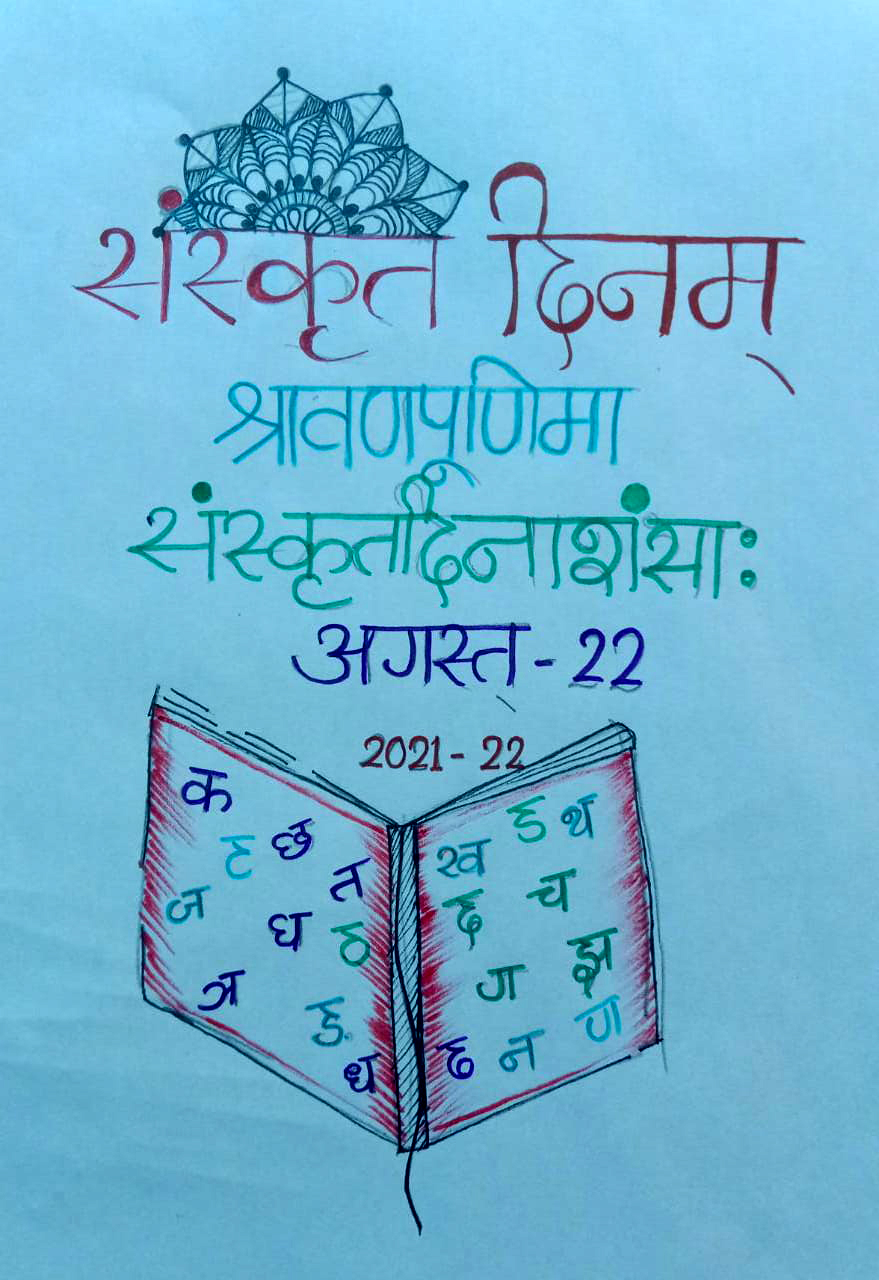 संस्कृत दिनम्
श्रावणपूणिमा
संस्कृतदिनाशंसाः
अगस्त् - 22
2021 - 22
क
ट छ
त
ज
घ ठ
ञ
ङ
ध
ख ड थ
द च
ग झ
ढ न ण